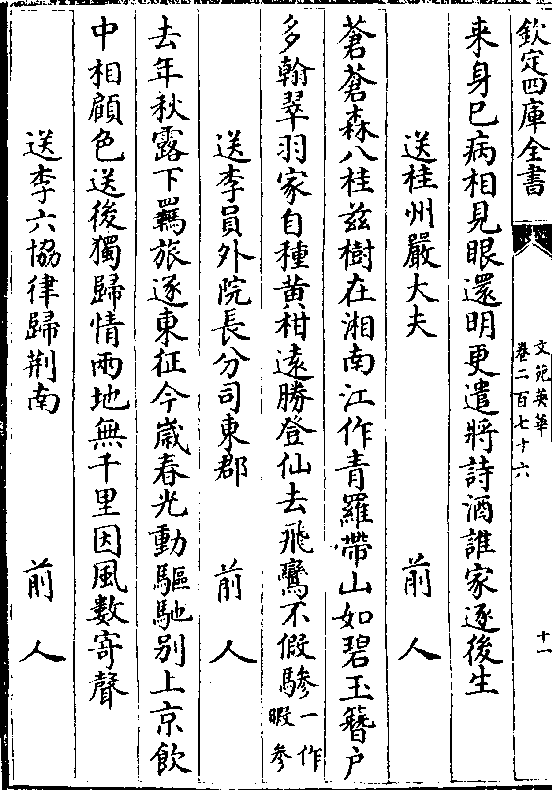 欽定四庫全書
文苑英華
卷二百七十六
十一
来身已病相見眼還明更遣將詩酒誰家逐後生
送桂州嚴大夫 前人
蒼蒼森八桂兹樹在湘南江作青羅帶山如碧玉簪户
多翰翠羽家自種黄柑遠勝登仙去飛鸞不假驂一作暇參
送李員外院長分司東都 前人
去年秋露下羈旅逐東征今歳春光動驅馳别上京飲
中相顧色送後獨歸情兩地無千里因風數寄聲
送李六協律歸荆南 前人